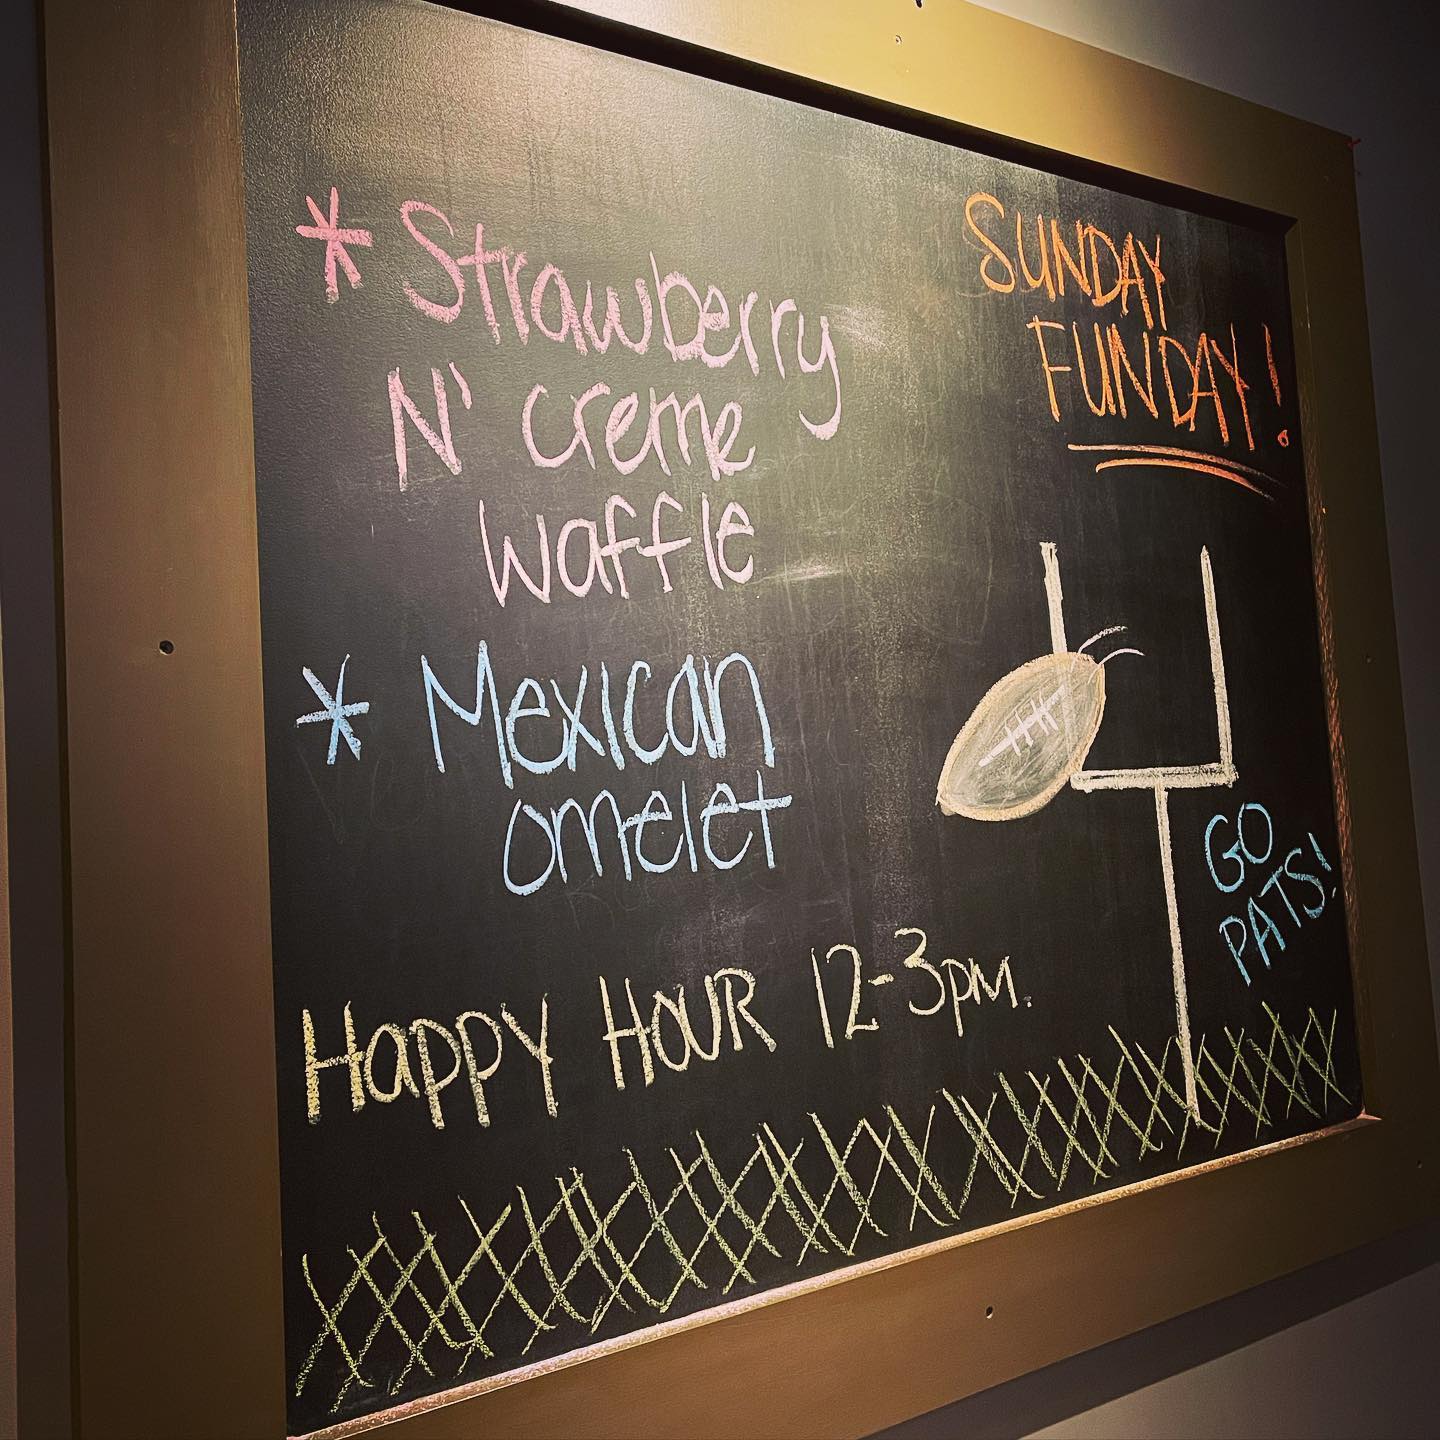 * Strawberry
N' creme
waffle
* Mexican
omelet
Happy Hour 12-3pm.
SUNDAY
FUNDAY!
GO
PATS!